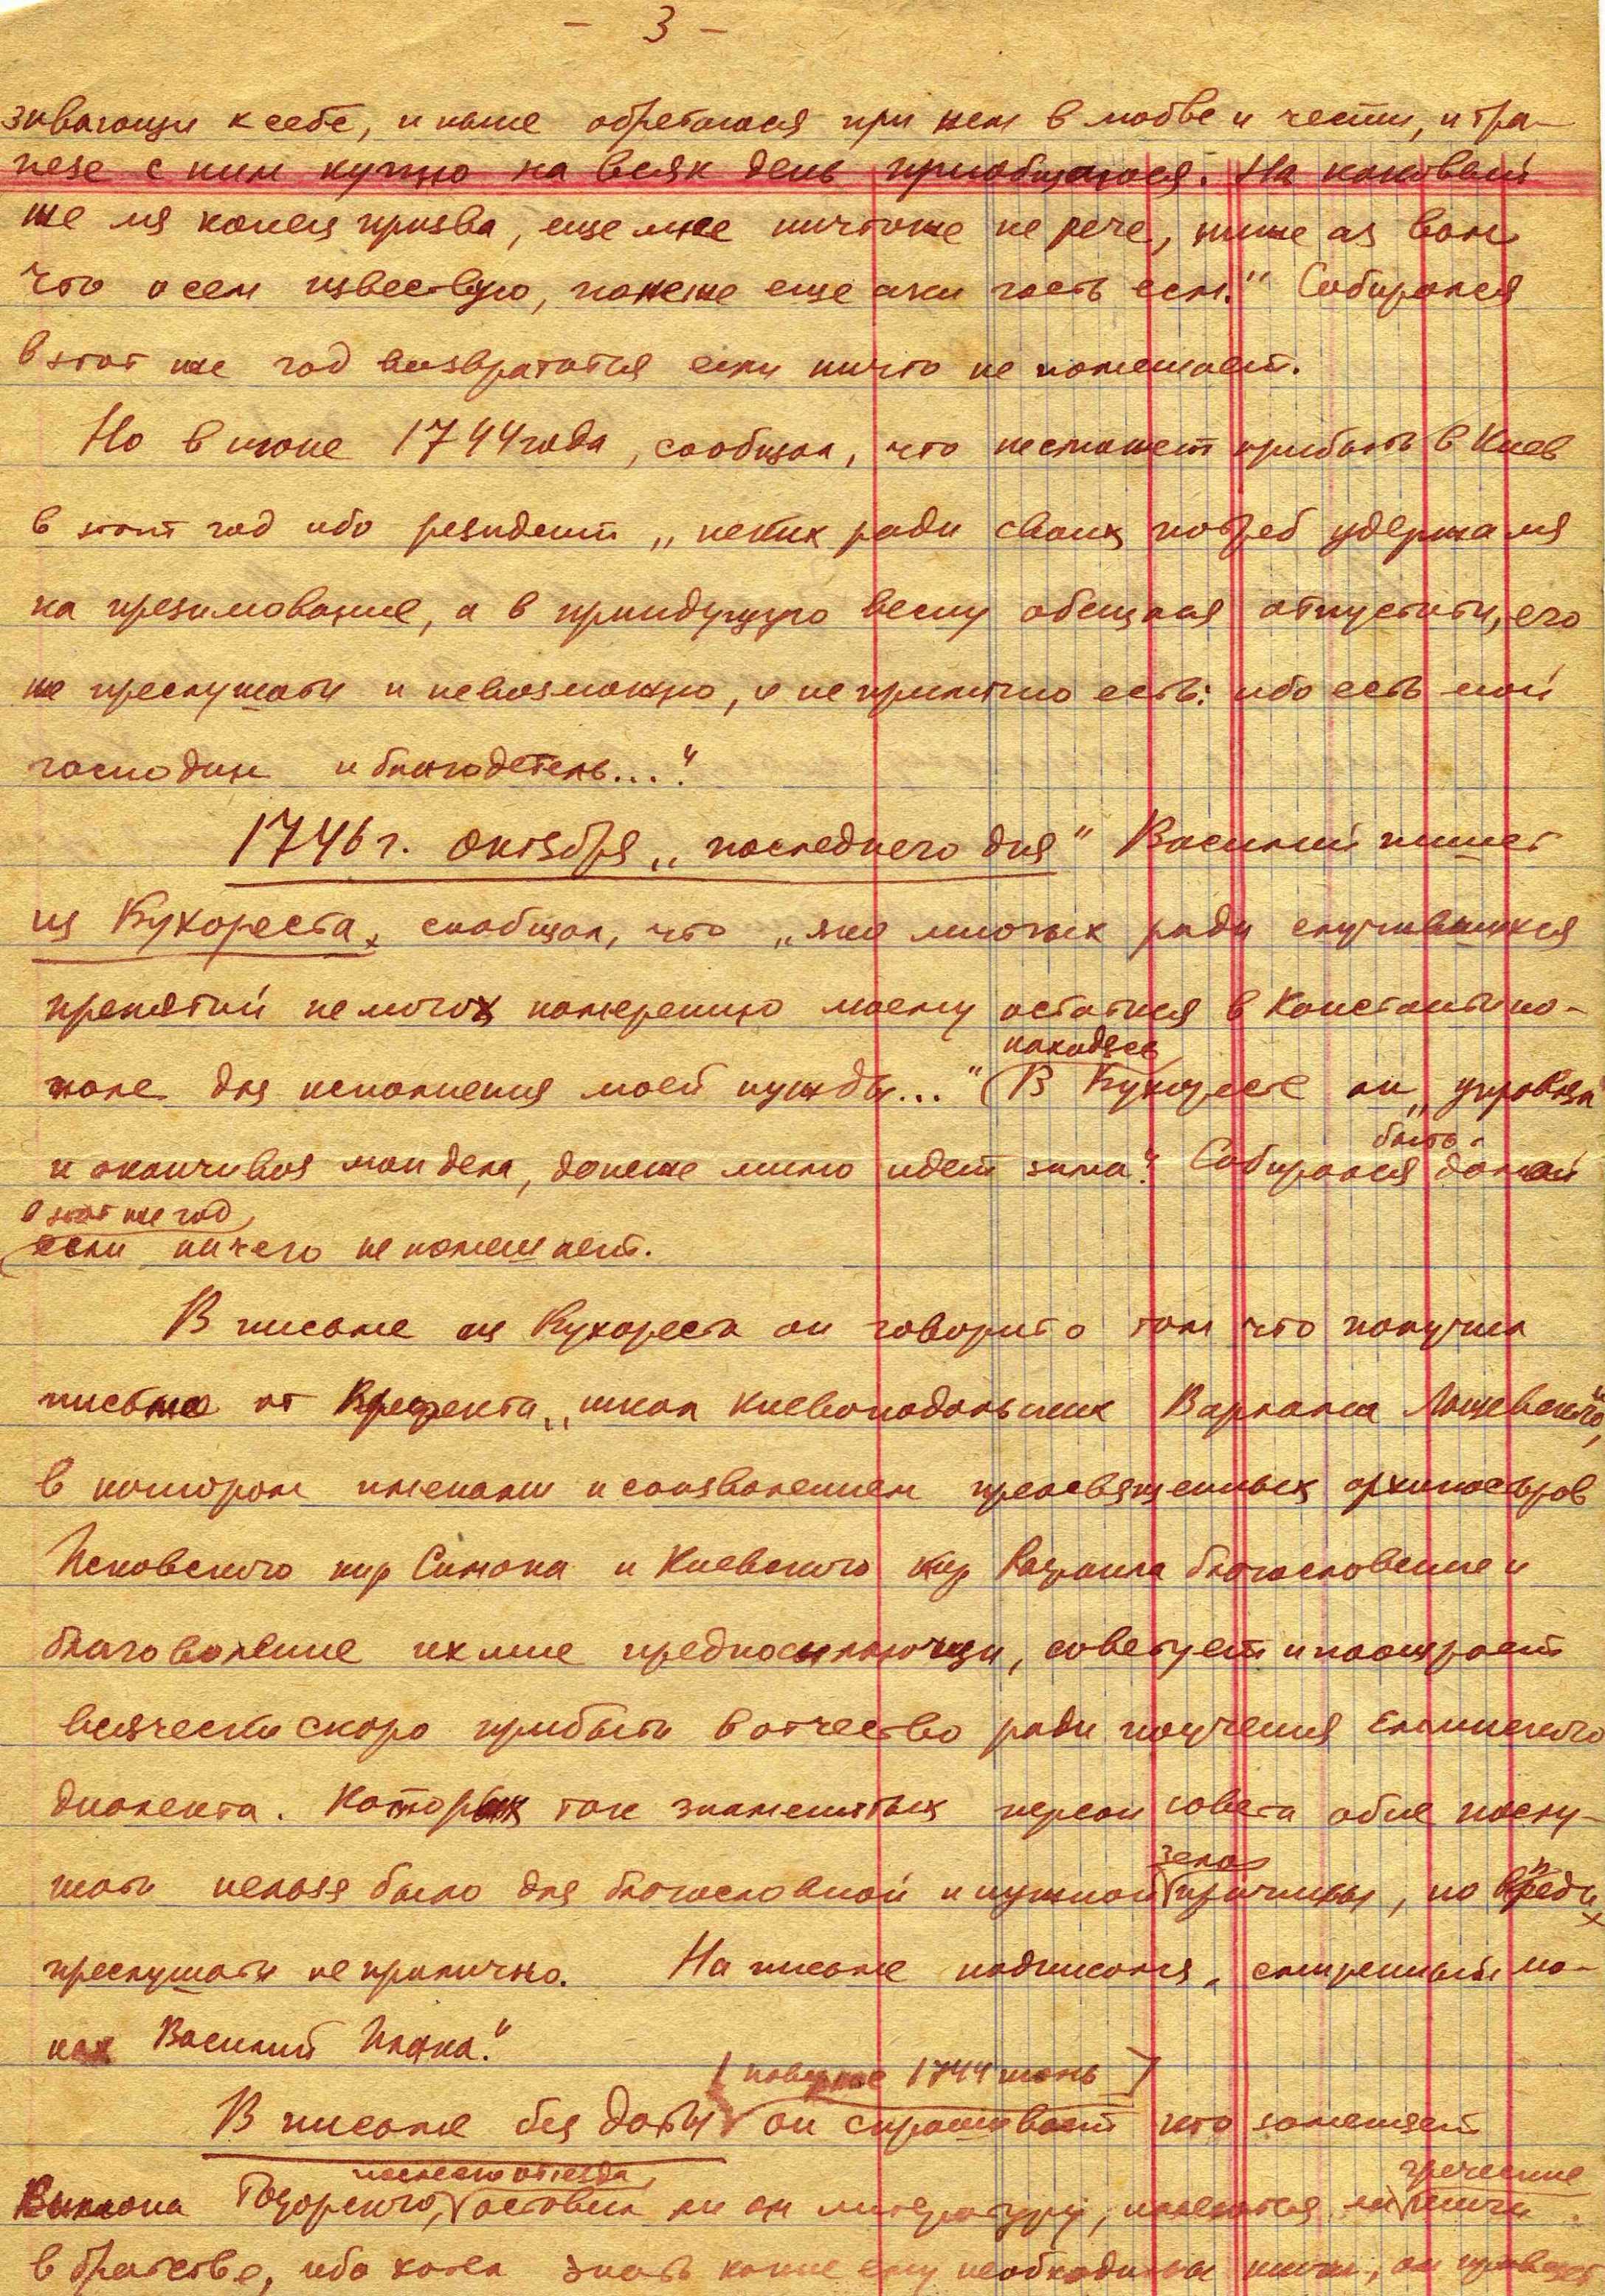 - 3 -
зивающи к себе, и ныне обретаюся при нем в любве и чести, и тра-
пезе с ним купно на всяк день приобщаюся. На каковый
же мя конец призва, еще мне ничтоже не рече, ниже аз вам
что о сем извествую, понеже еще аки гость есм." Собирался
в этот же год возвратится если ничто не помешает.
Но в июне 1744 года, сообщал, что не сможет прибыть в Киев
в этот год ибо резидент „неких ради своих потреб удержа мя
на презимование, а в приидущую весну обещаяся отпустити, его
же преслушати и невозможно, и неприлично есть: ибо есть мой
господин и благодетель..."
1746 г. октября „последнего дня" Василий пишет
из Бухореста, сообщал, что „яко многих ради случившихся
препятий не могох намерению моему остатися в Константино-
поле для исполнения моей нужды..." (В Бухоресте он „
находясь
и оканчивая мои дела, донеже мимо идет зима". Собирался домой
быть
в этот же год
если ничего не помешает.
В письме из Бухореста он говорит о том что получил
письмо от Префекта „школ киевоподольских Варлаама Лащевского",
в котором именами и соизволением преосвященных архипастыров
Псковского кир Симона и Киевского кир Рафаила благословение и
благоволение их мне предпосылающи, советует и поощряет
всячески скоро прибыти в отчество ради научения еллинского
диалекта. Которых так знаменитых персон совета абие послу-
шати нельзя было для благословной и нужной причины, но
зело
преслушати неприлично. На письме подписался „смиренный мо-
нах Василий Плака."
[ 1744 июнь ]
В письме без даты он спрашивает кто замещает
после его отъезда
греческие
Тодорского, оставил ли он литературу, имеются ли книги
в братстве, ибо хотел знать какие ему необходимы книги, он